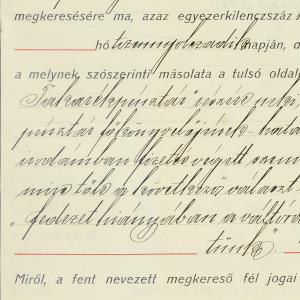 megkeresésére ma, azaz egyezerkilenczszáz
hó tizennyolczadik napján, d
a melynek szószerinti másolata a tulsó oldalo
Takarékpénztár" részére
pénztár főkönyvelőjének hata
irodámban fizetés végett
mire tőle a következő választ
"fedezet hiányában a váltóra
tünk".
Miről, a fent nevezett megkereső fél jogai